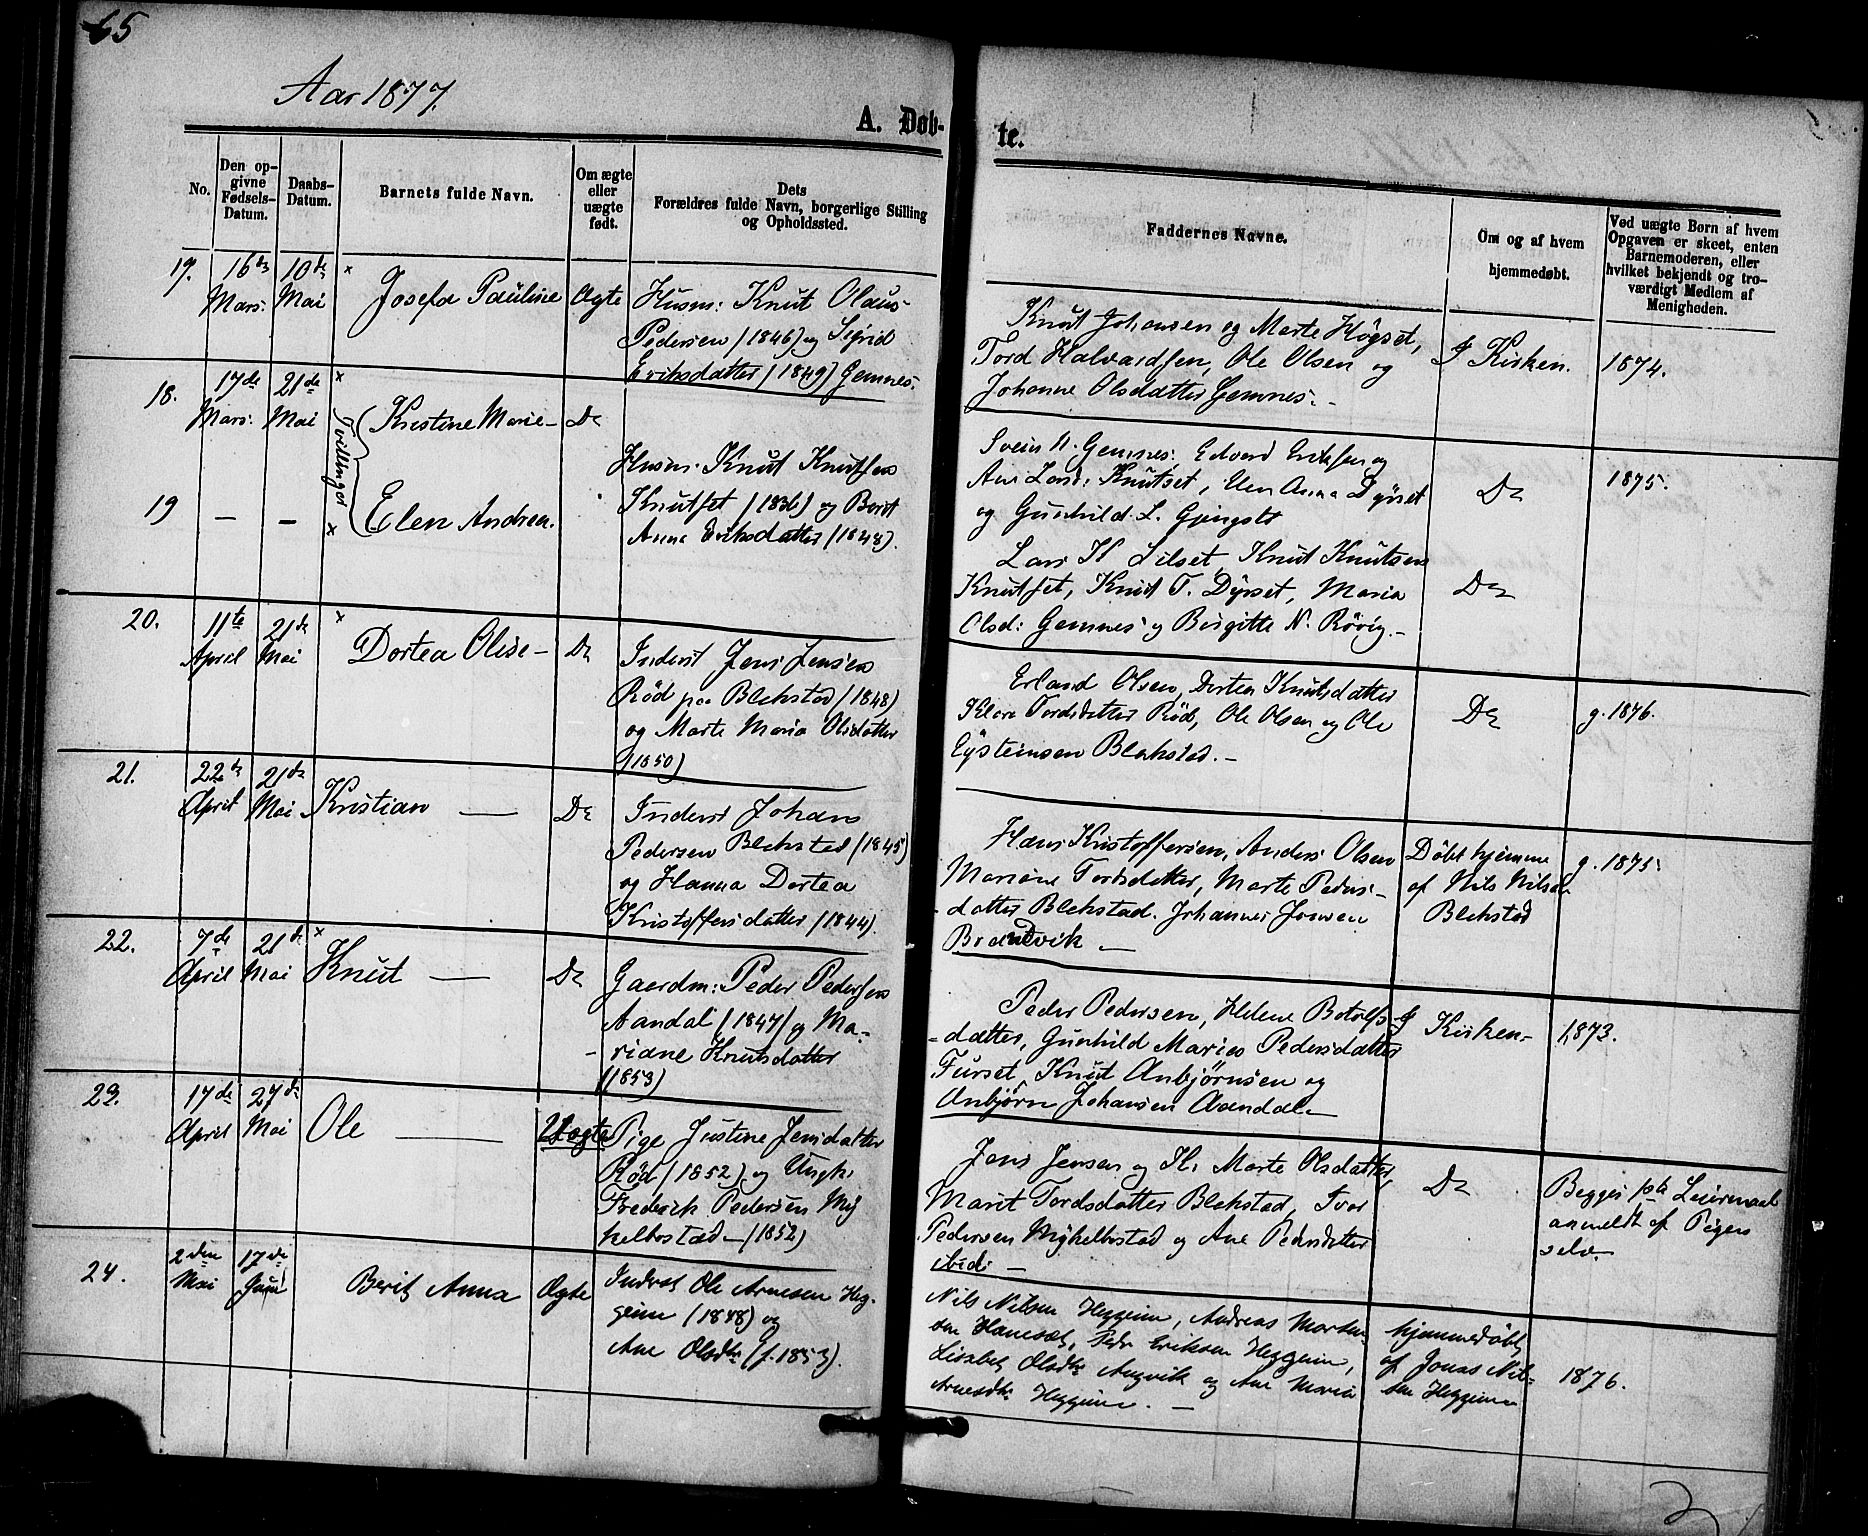 65
Aar 1877.
A. Døb-
te.
No.
Den op-
givne
Fødsels-
Datum.
Daabs-
Datum.
Barnets fulde Navn.
Om ægte
eller
uægte
født.
Dets
Forældres fulde Navn, borgerlige Stilling
og Opholdssted.
Faddernes Navne.
Om og af hvem
hjemmedøbt.
Ved uægte Børn af hvem
Opgaven er skeet, enten
Barnemoderen, eller
hvilket bekjendt og tro-
værdigt Medlem af
Menigheden.
17.
16de
Mars.
10de
Mai
×
Josefa Pauline
Ægte
Husm: Knut Olaus
Pedersen (1846) og Sigrid
Eriksdatter (1849) Gemnes.
Knut Johansen og Marte Høgset,
Tord Halvardsen, Ole Olsen og
Johanne Olsdatter Gemnes. -
I Kirken.
1874.
18.
17de
Mars.
21de
Mai
×
Tvillinger
Kristine Marie -
Do
Husm. Knut Knutsen
Knutset (1836) og Berit
Anne Eriksdatter (1848).
Svein H. Gemnes. Edvard Eriksen og
Ane Larsd: Knutset, Elen Anna Dyrset
og Gunhild L. Gjengsto
Do
1875.
19
-
-
×
Elen Andrea.
Lars K. Silset, Knut Knutsen
Knutset, Knut T. Dyrset, Maria
Olsd: Gemnes og Birgitte N. Rövig. -
Do
20.
11te
April
21de
Mai
×
Dortea Olise -
Do
Inderst Jens Jensen
Rød paa Blekstad (1848)
og Marte Maria Olsdatter
(1850)
Erland Olsen, Dortea Knutsdatter
Klara Tordsdatter Rød, Ole Olsen og Ole
Eysteinsen Blekstad. -
Do
g. 1876.
21.
22de
April
21de
Mai
Kristian -
Do
Inderst Johan
Pedersen Blekstad (1845)
og Hanna Dortea
Kristoffersdatter (1844).
Hans Kristoffersen, Anders Olsen
Mariane Tordsdatter, Marte Peders-
-datter Blekstad. Johannes Jonsen
Brandvik -
Døbt hjemme
af Nils Nilsen
Blekstad
g. 1875.
22.
7de
April
21de
Mai
×
Knut -
Do
Gaardm: Peder Pedersen
Aandal (1847) og Ma-
- riane Knutsdatter
(1853)
Peder Pedersen, Helene Botolfs-
-datter, Gunhild Marie Pedersdatter
Furset, Knut Anbjørnsen og
Anbjørn Johansen Aandal -
I Kirken -
1873.
23.
17de
April
27de
Mai
Ole -
Uægte
Pige Justine Jensdatter
Rød (1852) og Ungk.
Frederik Pedersen My
kelbostad - (1852)
Jens Jensen og K. Marte Olsdatter,
Marit Tordsdatter Blekstad, Ivar
Pedersen Mykelbostad og Ane Pedersdatter
ibid: -
Do
Begges 1ste Leiermaal
anmeldt af Pigen
selv
24.
2den
Mai
17de
Juni
Berit Anna
Ægte
Inderst Ole Arnesen Heg-
geim (1848) og
Ane Olsdtr (f. 1853).
Nils Nilsen Heggeim, Andreas Morten-
sen Hanesæt, Peder Eriksen Heggeim,
Lisabet Olsdtr Angvik og Ane Maria
Arnesdtr Heggeim. -
hjemmedøbt
af Jonas Nil-
sen Heggeim
1876.